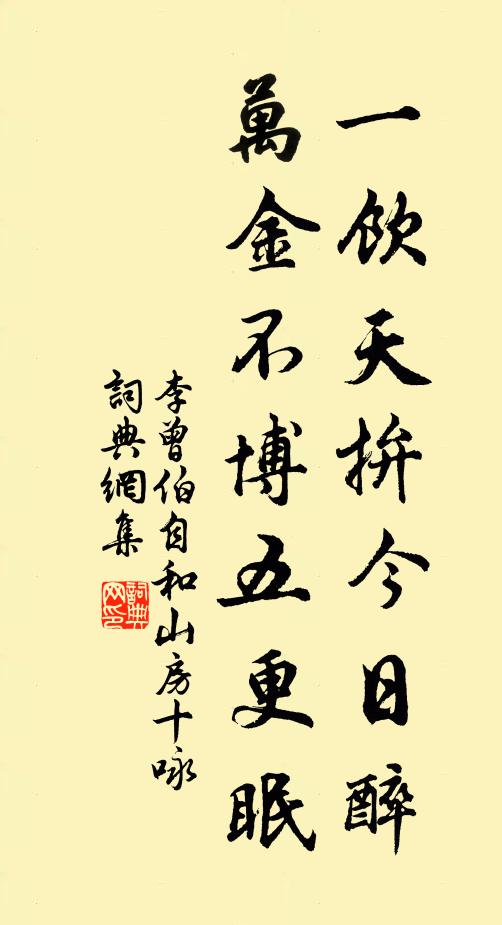 一飲天拚今日醉
萬金不博五更眠
李曾伯自和山房十咏
詞典網集
詞典
网印